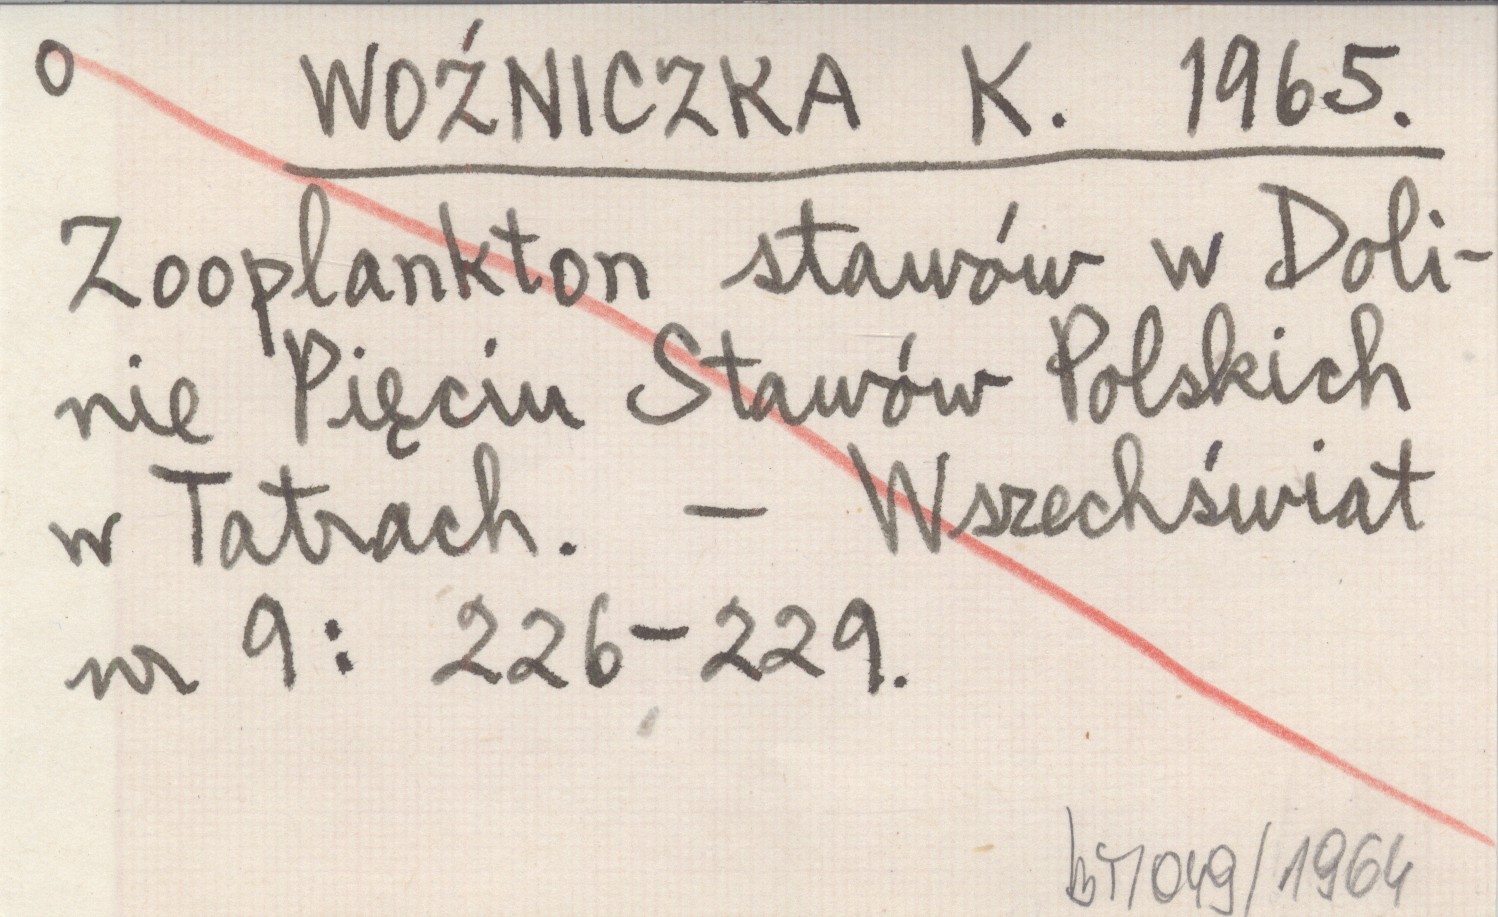 o WOŹNICZKA K. 1965.
Zooplankton stawów w Doli-
nie Pięciu Stawów Polskich
w Tatrach. — Wszechświat
nr 9: 226-229.
/049/1964